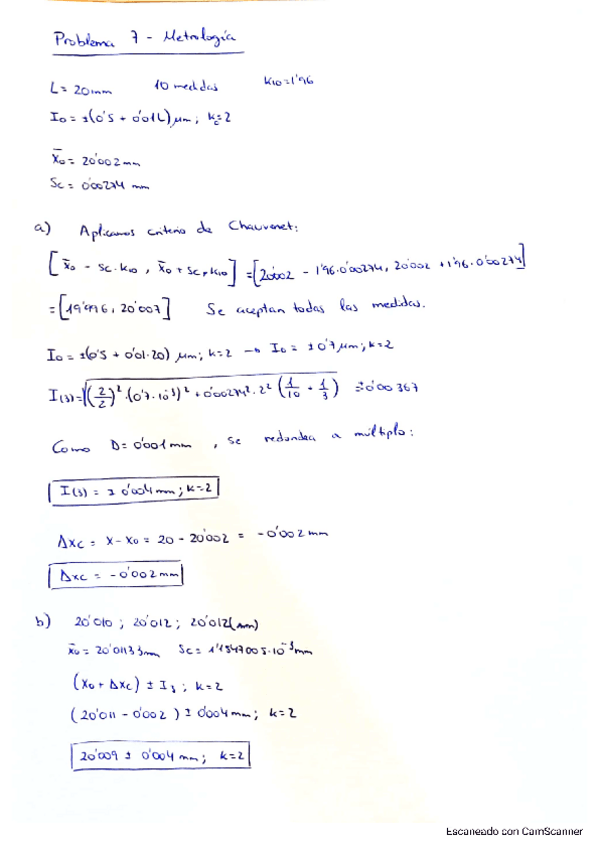 Problema 7 - Metrología
L = 20mm 10 medidas K10 = 1'96
I0 = ±(0'5 + 0'01L) μm ; kc = 2
x̄0 = 20'002 mm
Sc = 0'00274 mm
a) Aplicamos criterio de Chauvenet:
[x̄0 - Sc·K10 , x̄0 + Sc·K10] = [20'002 - 1'96·0'00274, 20'002 + 1'96·0'00274]
= [19'996, 20'007] Se aceptan todas las medidas.
I0 = ±(0'5 + 0'01·20) μm ; k=2 → I0 = ±0'7 μm ; k=2
I(3) = √((2/2)²·(0'7·10⁻³)² + 0'00274²·2²(1/10 + 1/3)) = 0'00367
Como D = 0'001mm , se redondea a múltiplo:
I(3) = ±0'004 mm ; k=2
Δxc = x - x0 = 20 - 20'002 = -0'002 mm
Δxc = -0'002 mm
b) 20'010 ; 20'012 ; 20'012 (mm)
x̄0 = 20'01133mm Sc = 1'1547005·10⁻³mm
(x0 + Δxc) ± I3 ; k=2
(20'011 - 0'002) ± 0'004 mm ; k=2
20'009 ± 0'004 mm ; k=2
Escaneado con CamScanner